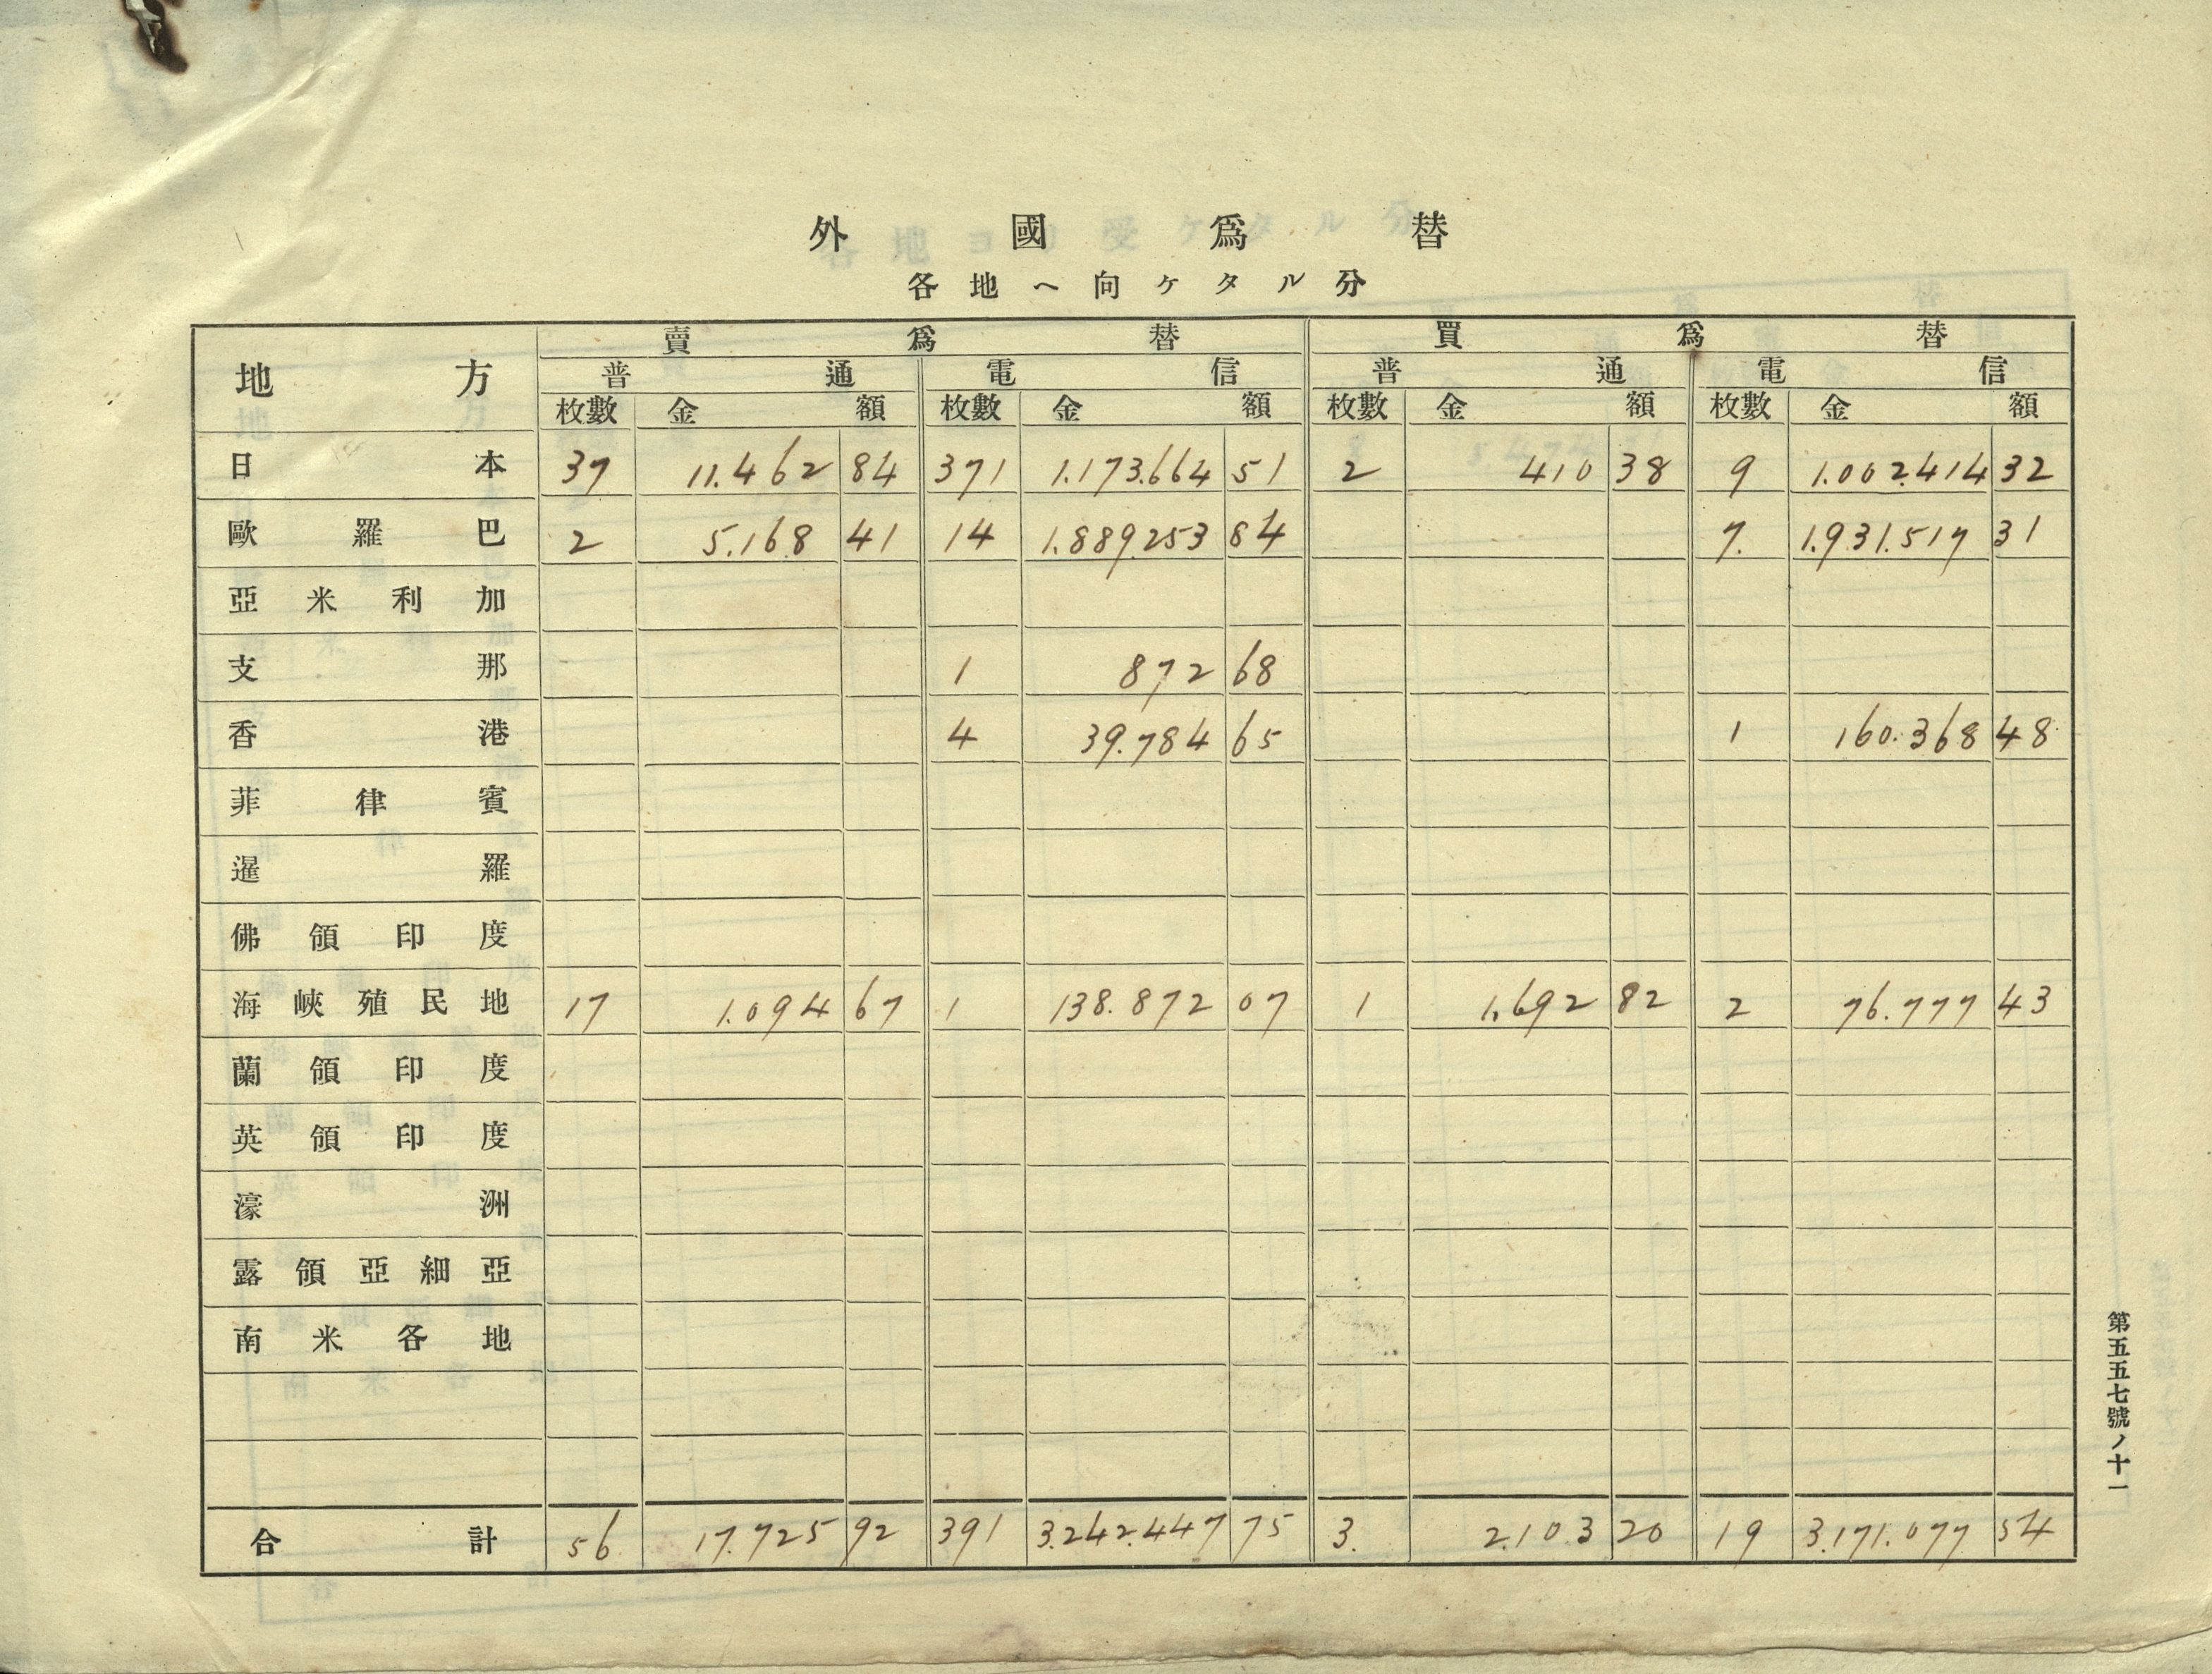 外國爲替
各地ヘ向ケタル分
地方 賣爲替 買爲替
普通 電信 普通 電信
枚數 金額 枚數 金額 枚數 金額 枚數 金額
日本 37 11.462 84 371 1.173.664 51 2 410 38 9 1.002.414 32
歐羅巴 2 5.168 41 14 1.889.253 84 7. 1.931.517 31
亞米利加
支那 1 872 68
香港 4 39.784 65 1 160.368 48
菲律賓
暹羅
佛領印度
海峽殖民地 17 1.094 67 1 138.872 07 1 1.692 82 2 76.777 43
蘭領印度
英領印度
濠洲
露領亞細亞
南米各地
合計 56 17.725 92 391 3.242.447 75 3. 2.103 20 19 3.171.077 54
第五五七號ノ十一